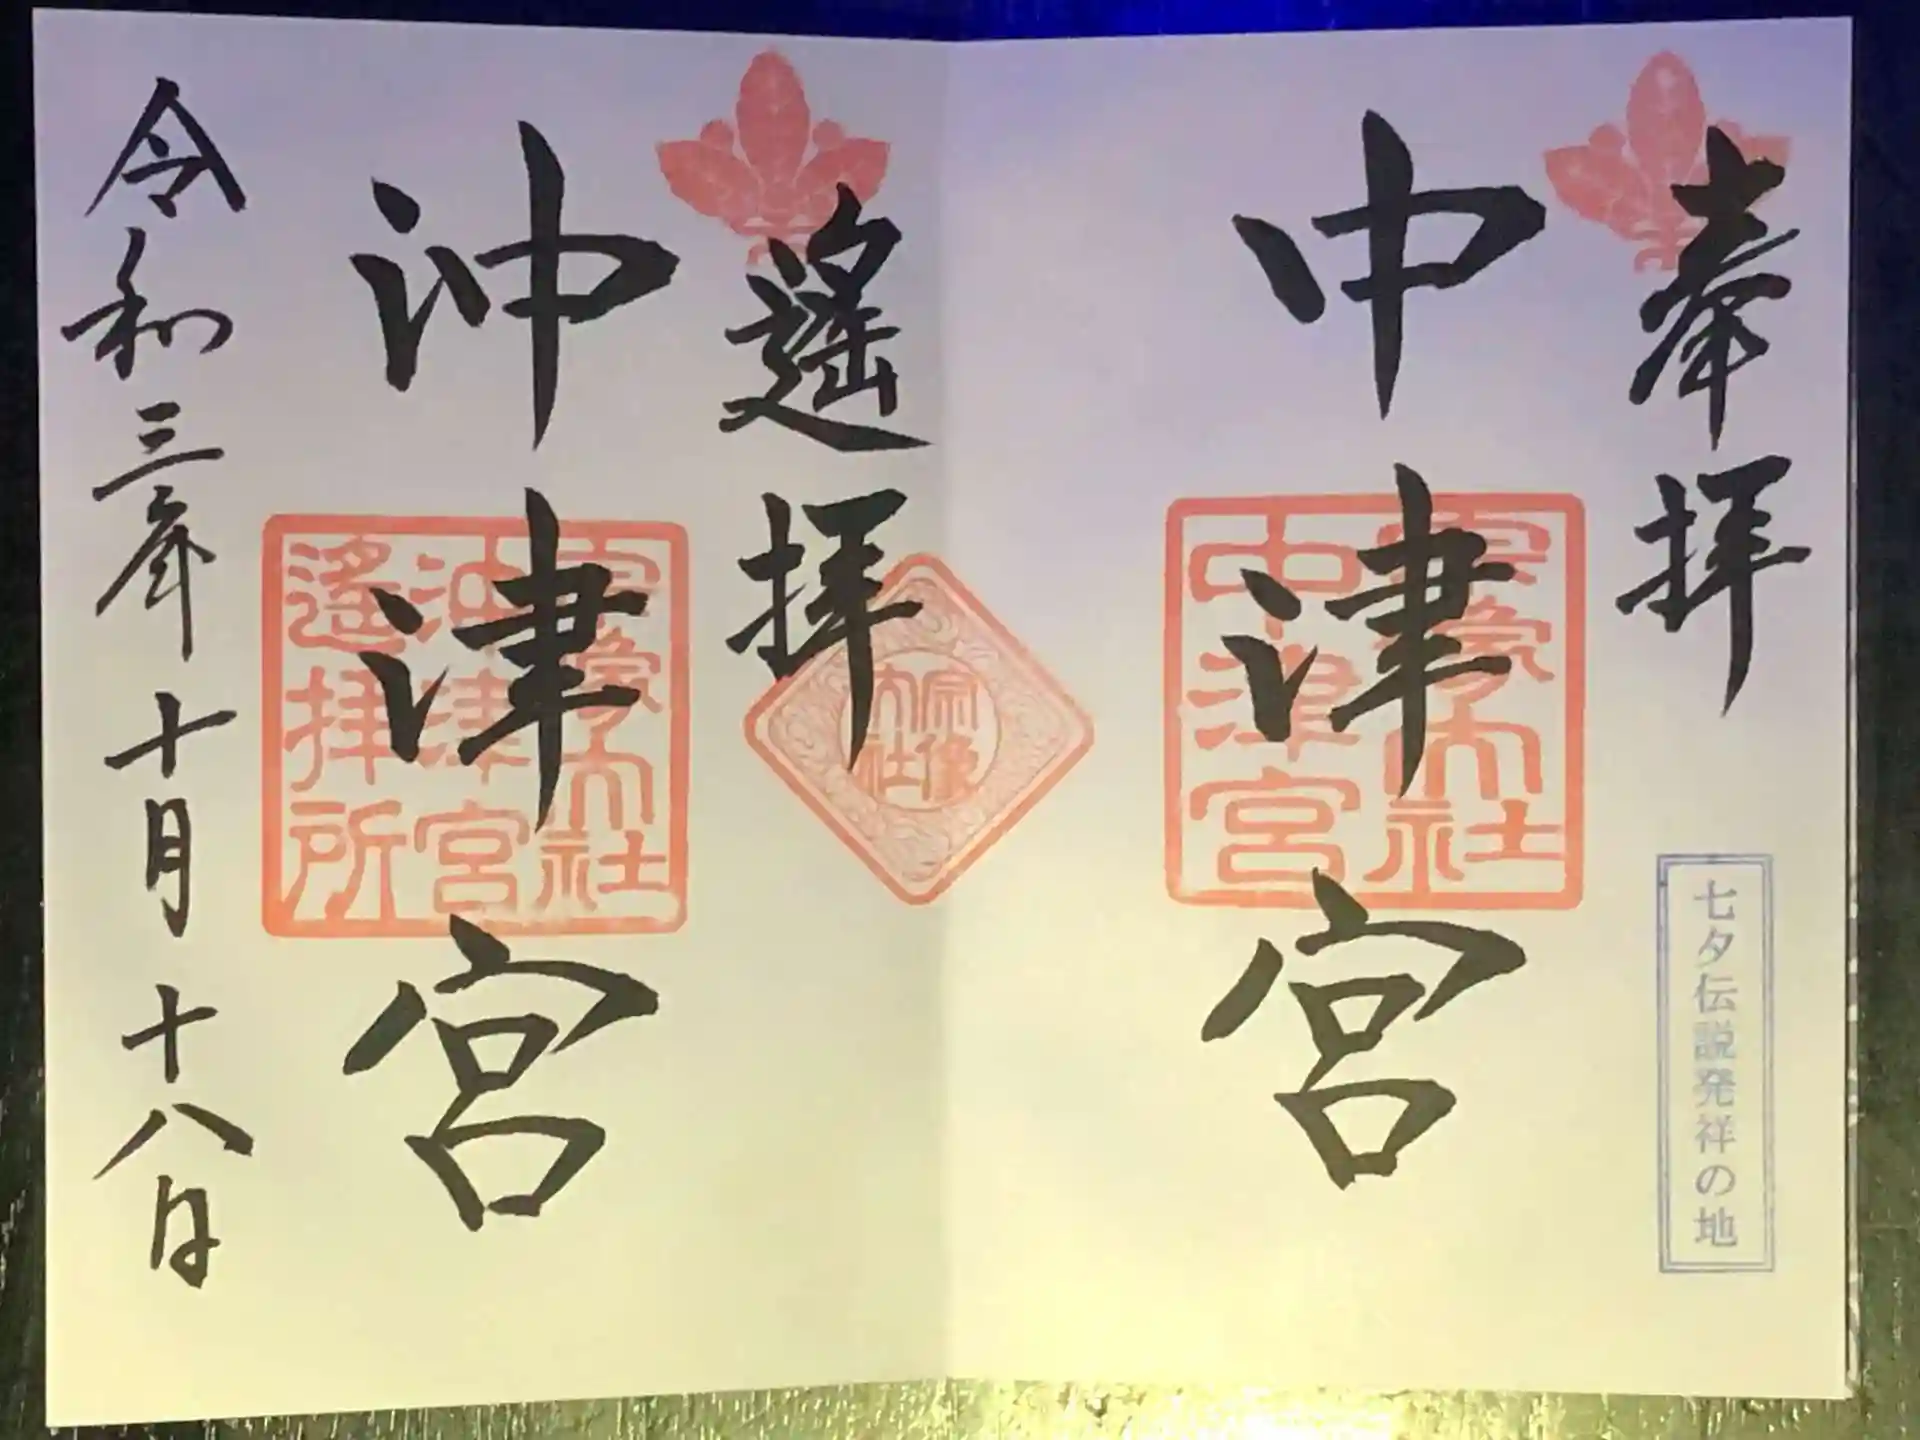 奉拝
中津宮
宗像大社
中津宮
七夕伝説発祥の地
遥拝
沖津宮
宗像
大社
宗像大社
沖津宮
遥拝所
令和三年十月十八日